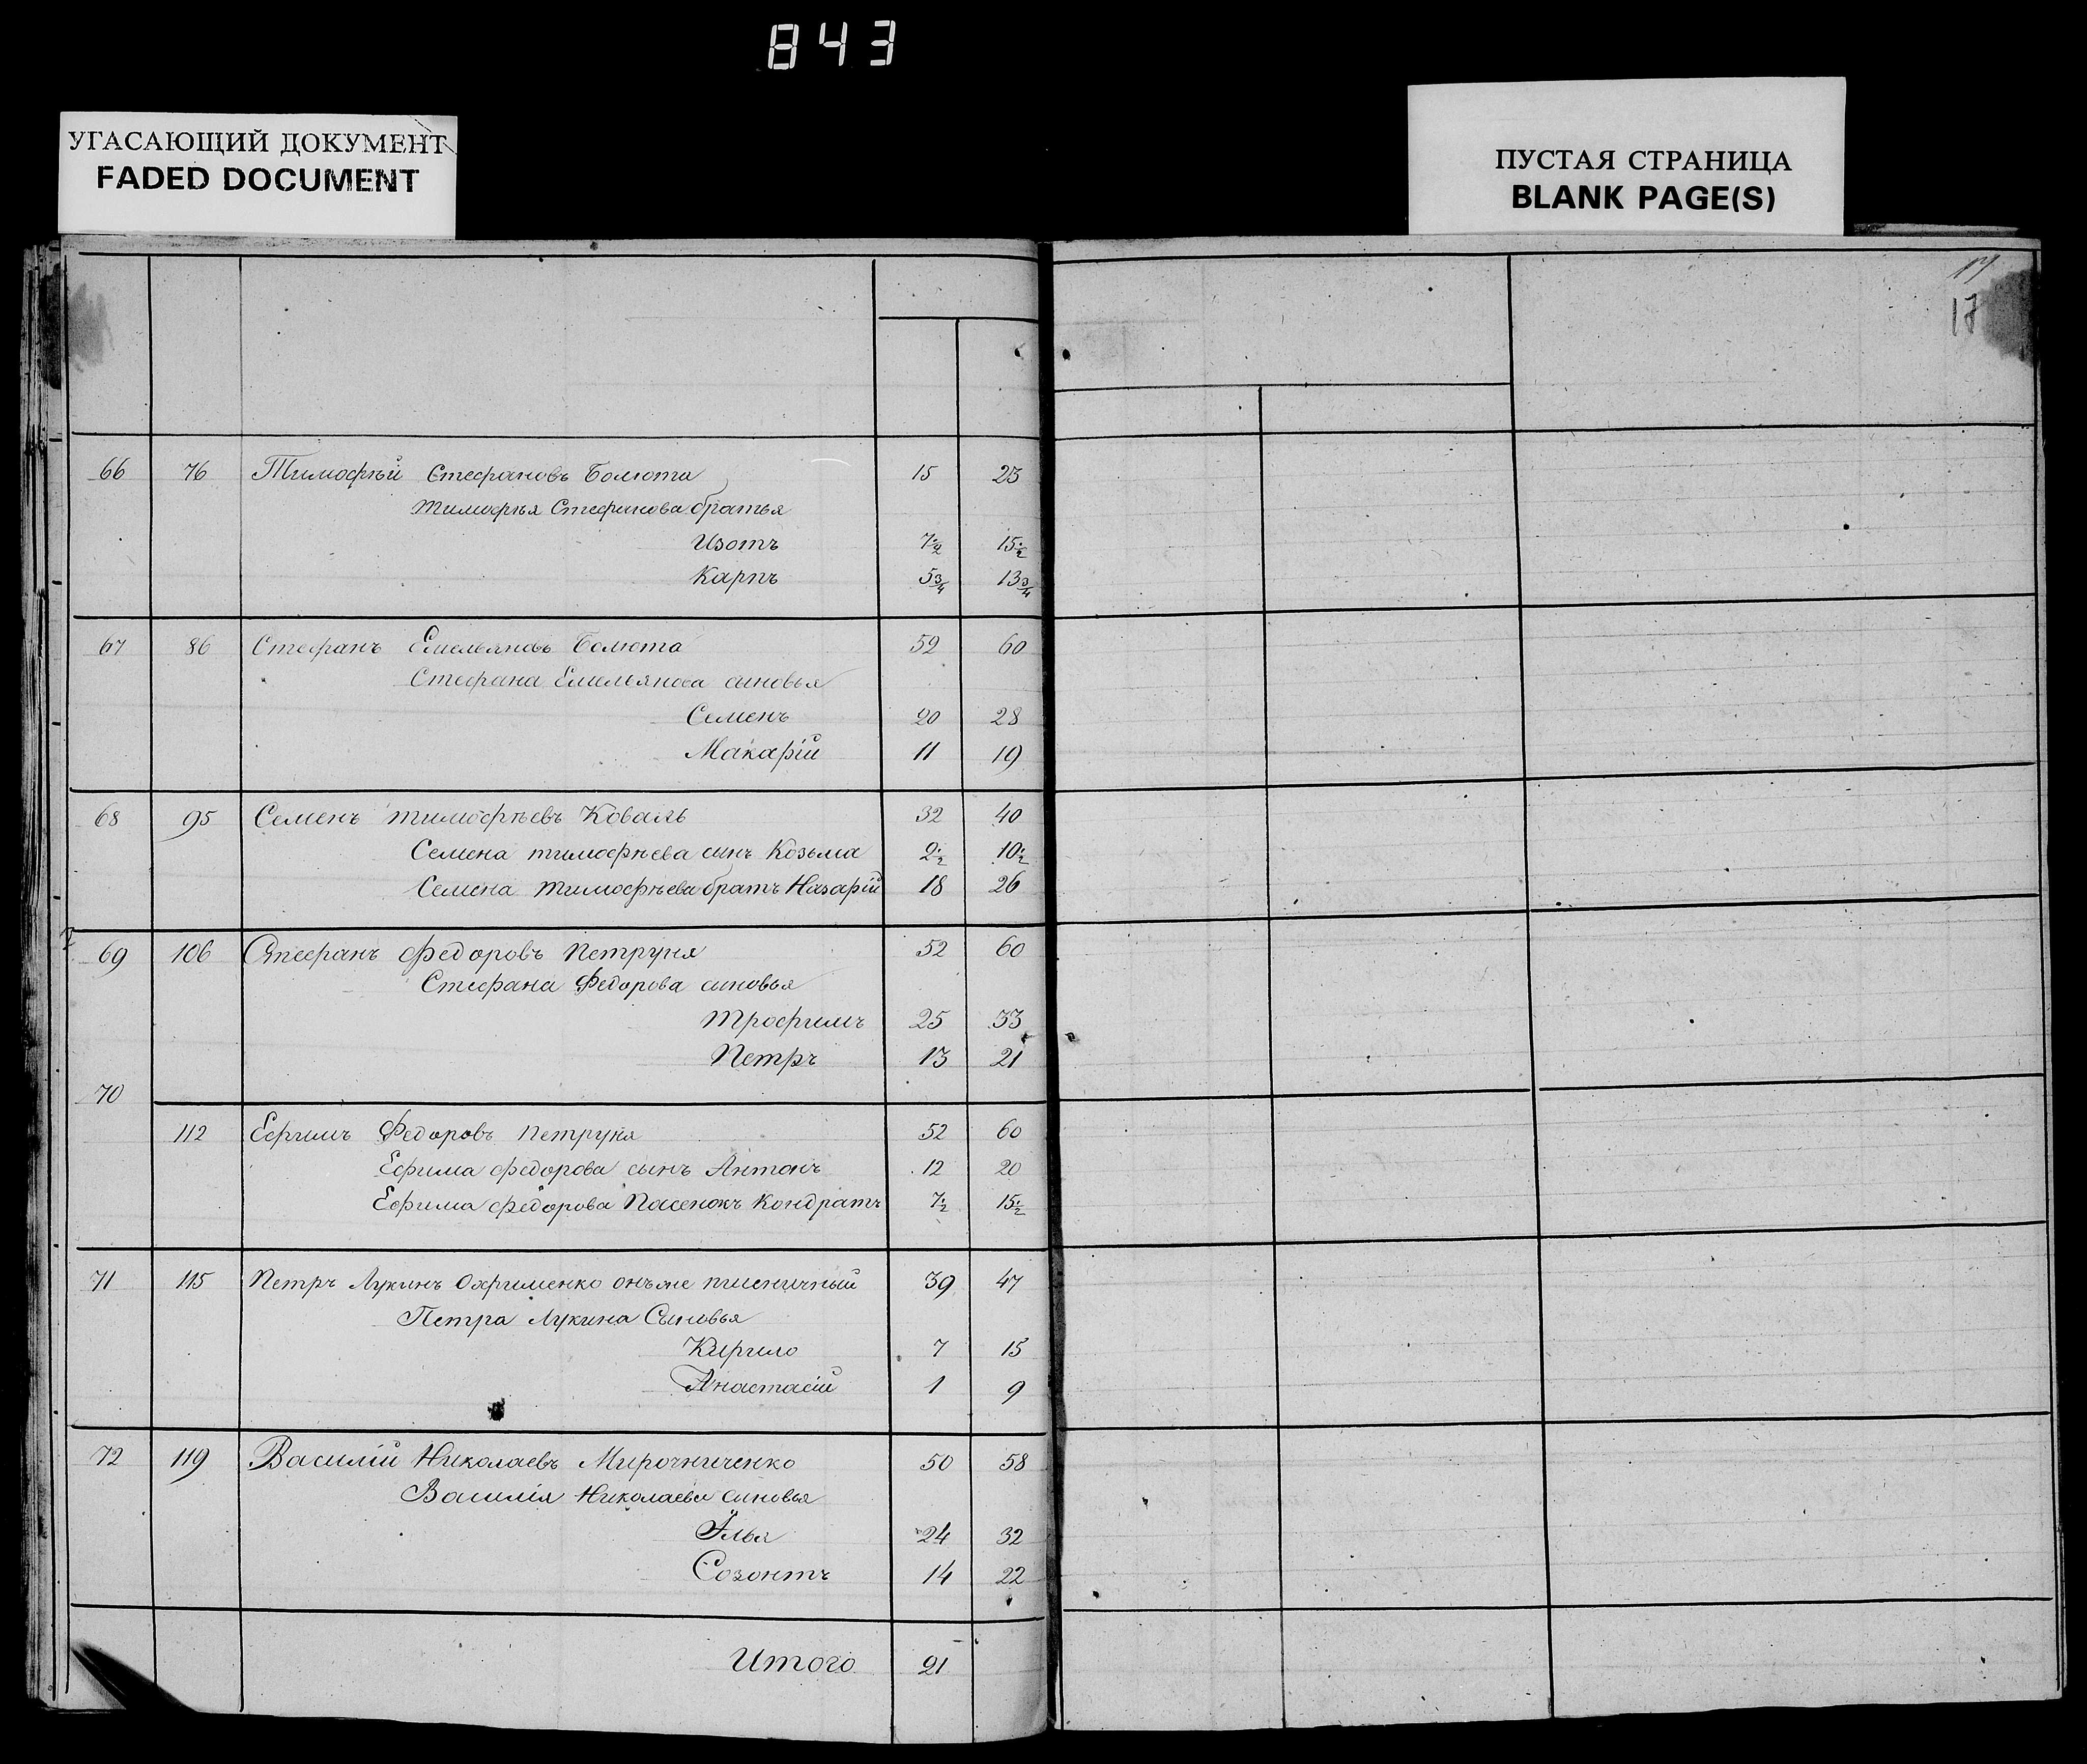 843
УГАСАЮЩИЙ ДОКУМЕНТ
FADED DOCUMENT
ПУСТАЯ СТРАНИЦА
BLANK PAGE(S)
17
17
66 76 Тимофѣй Стефановъ Болюта 15 23
Тимофѣя Стефанова братья
Изотъ 7 1/2 15 1/2
Карпъ 5 3/4 13 3/4
67 86 Стефанъ Емельяновъ Болюта 52 60
Стефана Емельянова синовья
Семенъ 20 28
Макарій 11 19
68 95 Семенъ Тимофѣевъ Коваль 32 40
Семена Тимофѣева синъ Козьма 2 1/2 10 1/2
Семена Тимофѣева братъ Назарій 18 26
69 106 Стефанъ Федоровъ Петруня 52 60
Стефана Федорова синовья
Трофимъ 25 33
Петръ 13 21
70
112 Ефимъ Федоровъ Петруня 52 60
Ефима Федорова сынъ Антонъ 12 20
Ефима Федорова Пасенокъ Кондратъ 7 1/2 15 1/2
71 115 Петръ Лукинъ Охрименко онъ же пшеничный 39 47
Петра Лукина Сыновья
Кирило 7 15
Анастасій 1 9
72 119 Василій Николаевъ Мирочниченко 50 58
Василія Николаева синовья
Илья 24 32
Созонтъ 14 22
Итого 21